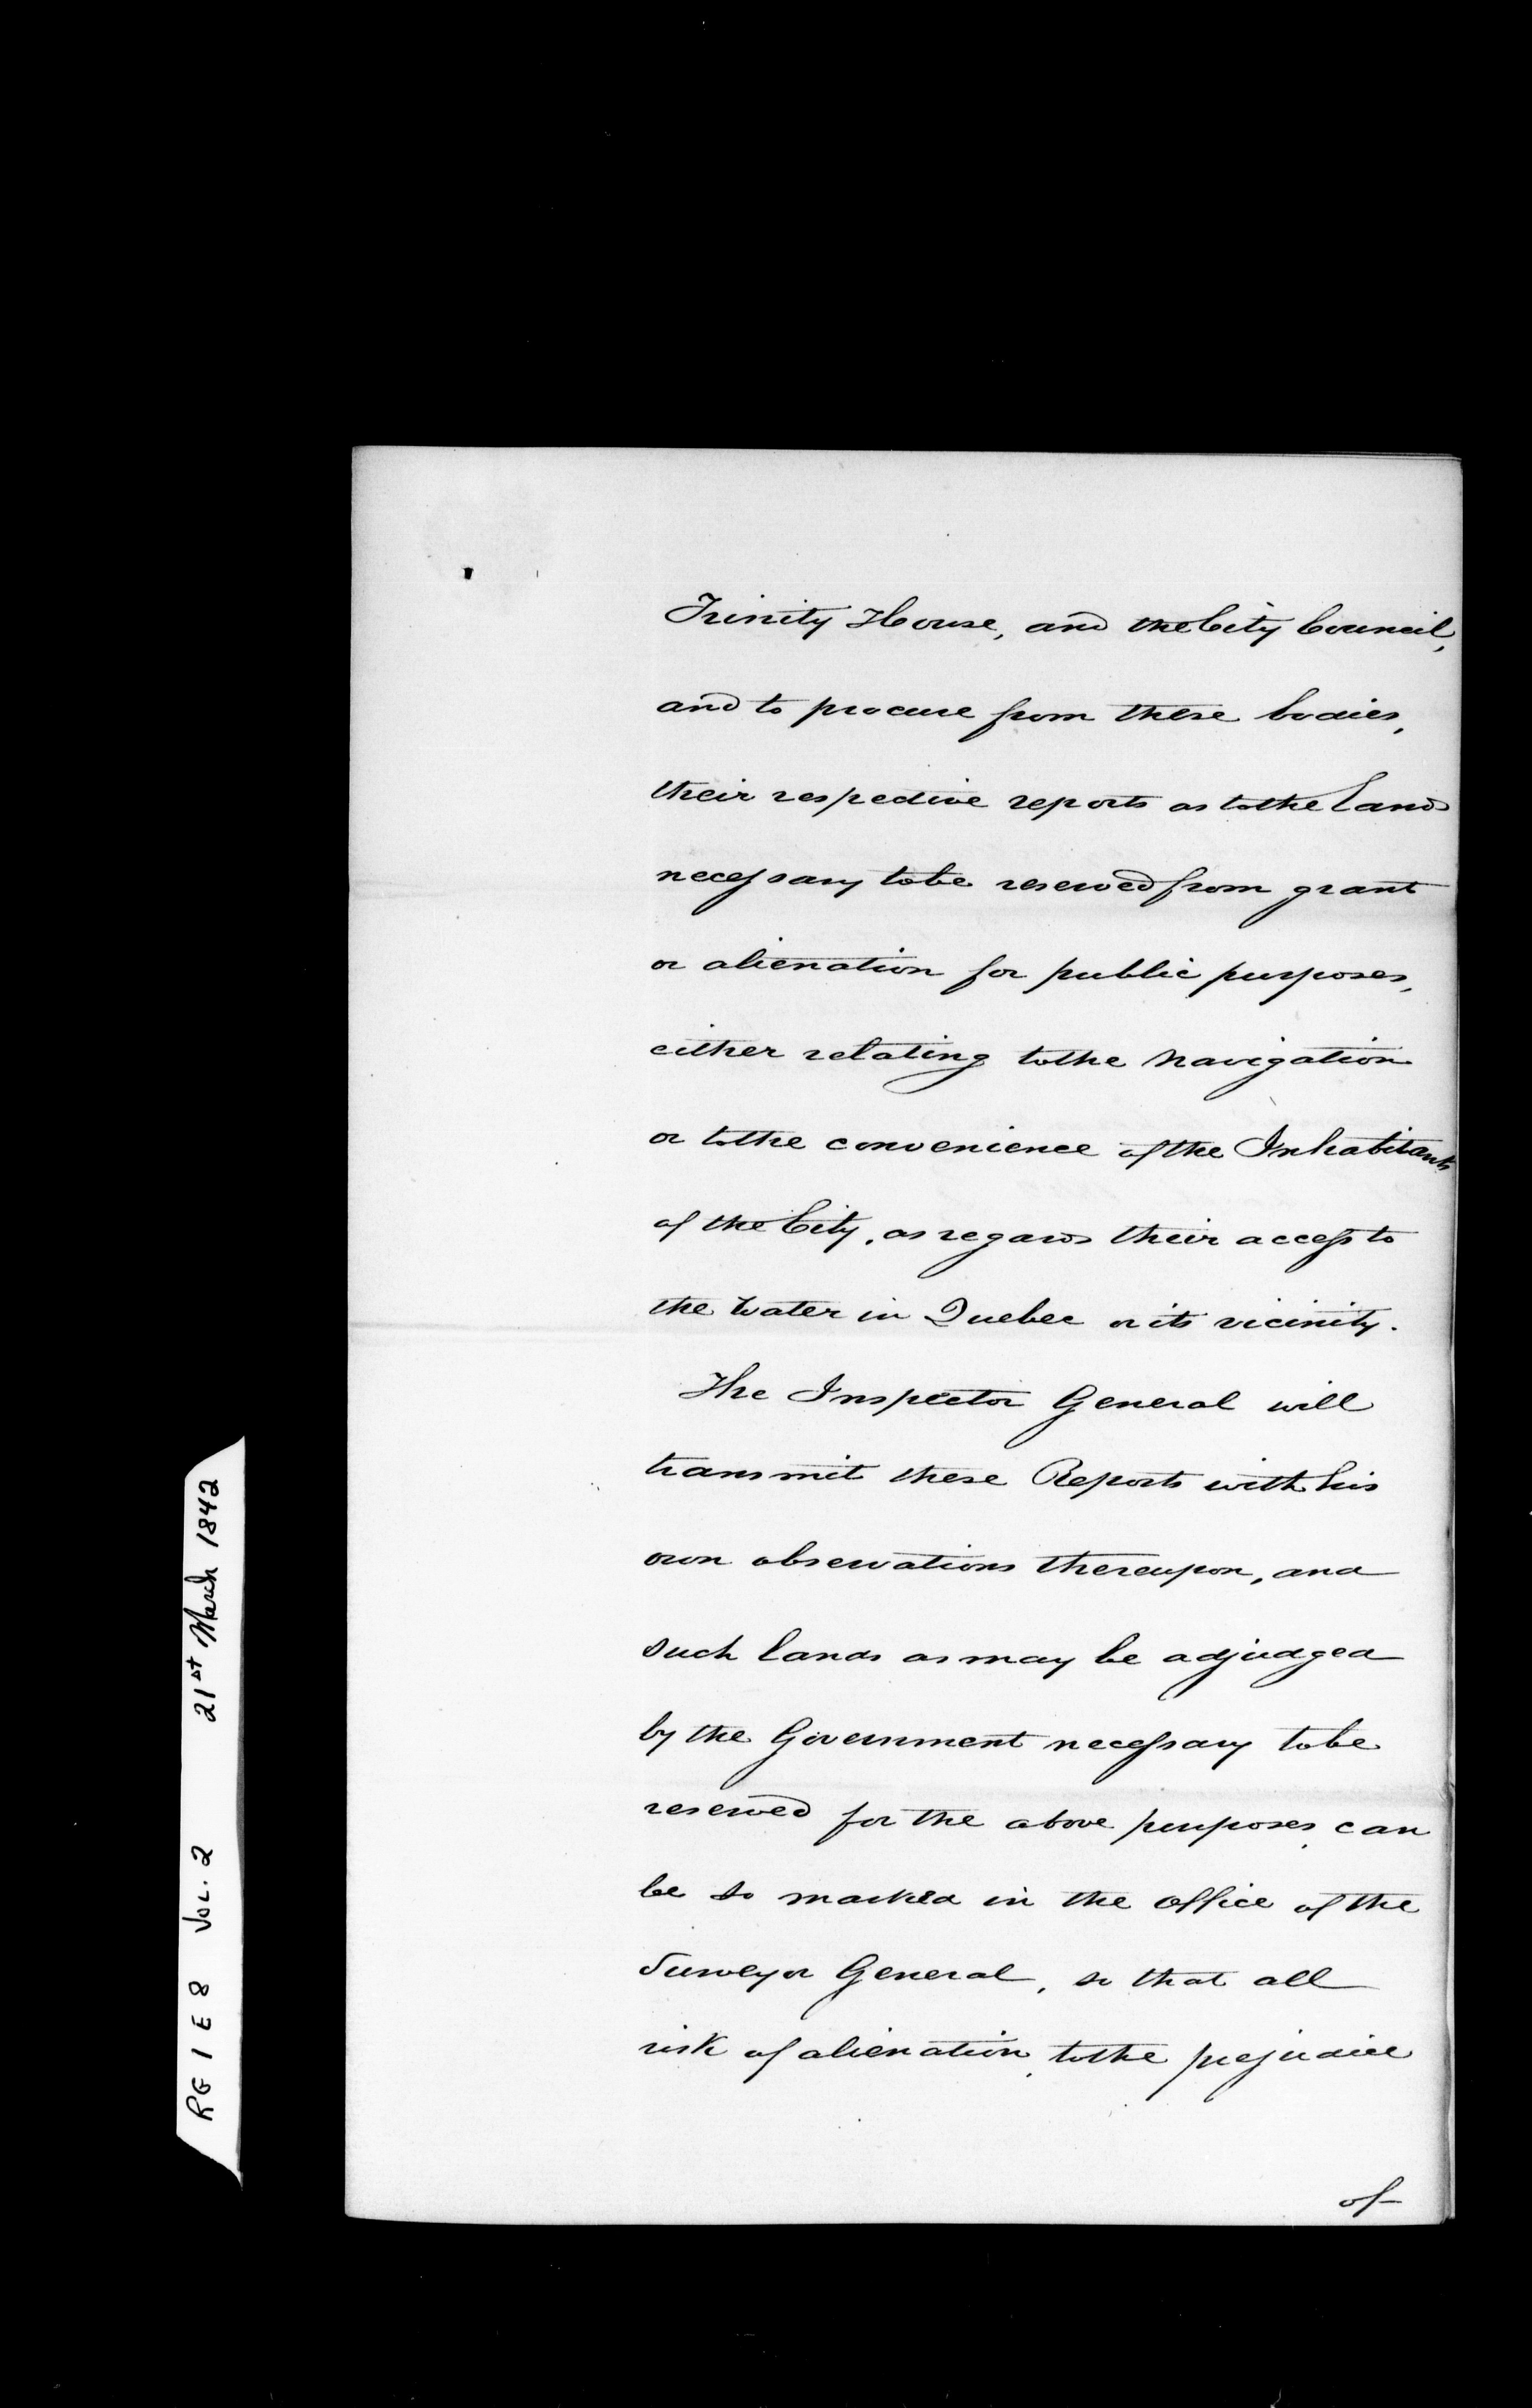 Trinity House, and the City Council,
and to procure from these bodies,
their respective reports as to the Land
necessary to be reserved from grant
or alienation for public purposes,
either relating to the Navigation
or to the convenience of the Inhabitants
of the City, as regards their access to
the Water in Quebec or its vicinity.
The Inspector General will
transmit these Reports with his
own observations thereupon, and
such lands as may be adjudged
by the Government necessary to be
reserved for the above purposes, can
be so marked in the office of the
Surveyor General, so that all
risk of alienation, to the prejudice
of
RG 1 E 8 VOL. 2 21st March 1842